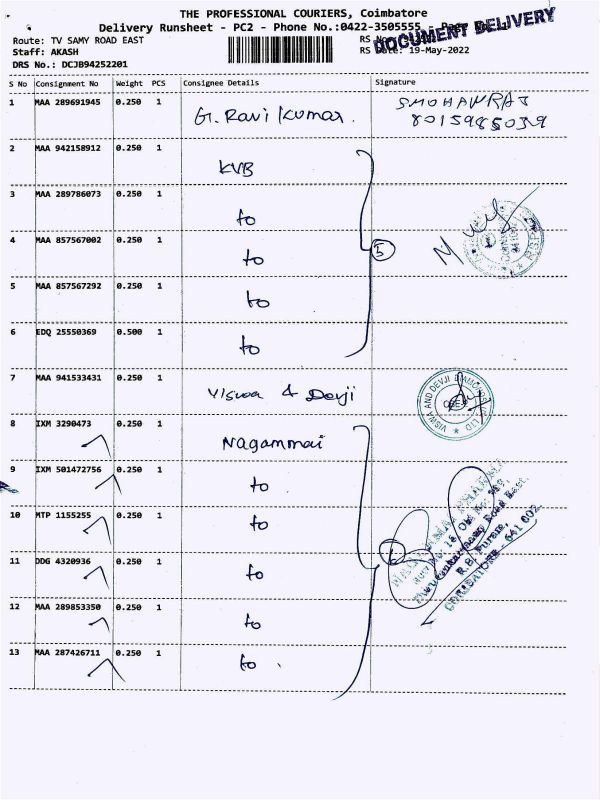 THE PROFESSIONAL COURIERS, Coimbatore
Delivery Runsheet - PC2 - Phone No.:0422-3505555 - Page No.
DOCUMENT DELIVERY
Route: TV SAMY ROAD EAST RS No.
Staff: AKASH RS Date: 19-May-2022
DRS No.: DCJB94252201
S No Consignment No Weight PCS Consignee Details Signature
1 MAA 289691945 0.250 1 G. Ravi Kumar. SMOHANRAJ
8015985039
2 MAA 942158912 0.250 1 KVB
3 MAA 289786073 0.250 1 to
4 MAA 857567002 0.250 1 to 5
5 MAA 857567292 0.250 1 to
6 EDQ 25550369 0.500 1 to
7 MAA 941533431 0.250 1 Viswa & Devji VISWA AND DEVJI DIAMONDS LTD
8 IXM 3290473 0.250 1 Nagammai
9 IXM 501472756 0.250 1 to
10 MTP 1155255 0.250 1 to
11 DDG 4320936 0.250 1 to
12 MAA 289853350 0.250 1 to
13 MAA 287426711 0.250 1 to
Road East,
R.S. Puram,
COIMBATORE - 641 002